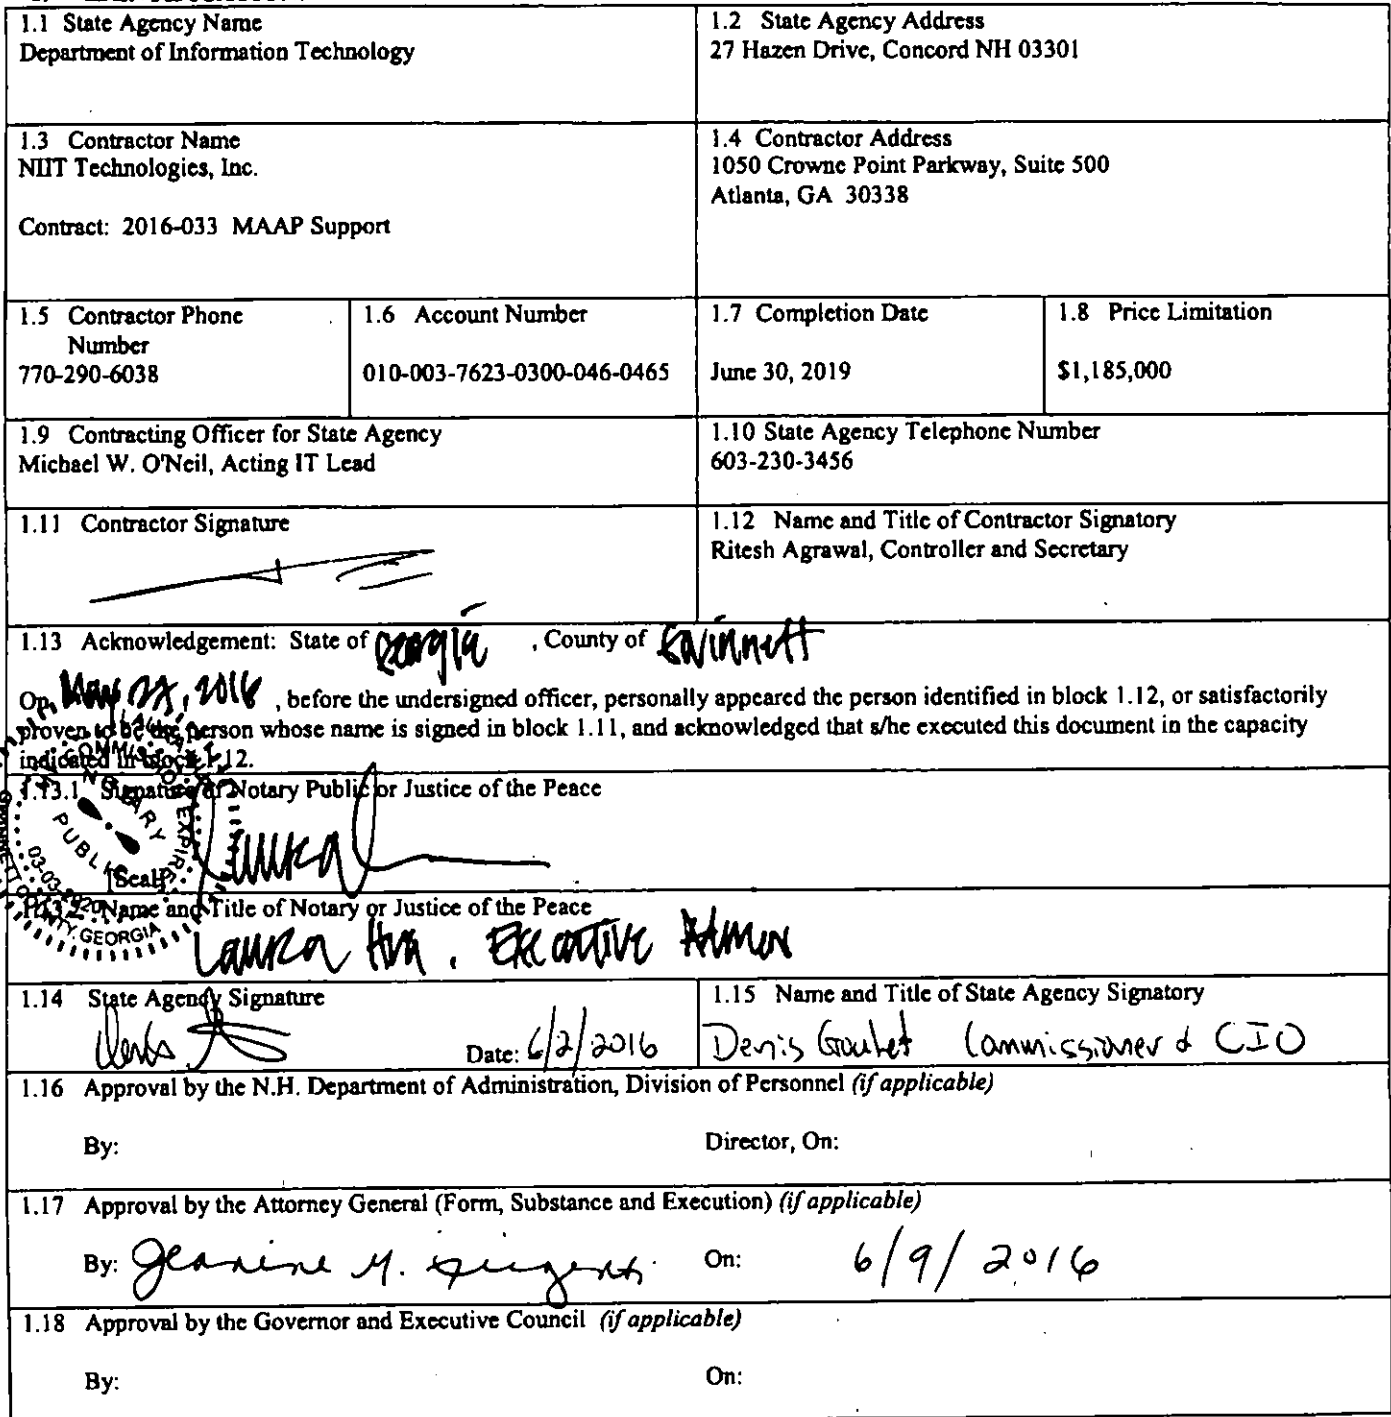 1.1 State Agency Name
Department of Information Technology
1.2 State Agency Address
27 Hazen Drive, Concord NH 03301
1.3 Contractor Name
NIIT Technologies, Inc.
Contract: 2016-033 MAAP Support
1.4 Contractor Address
1050 Crowne Point Parkway, Suite 500
Atlanta, GA 30338
1.5 Contractor Phone
Number
770-290-6038
1.6 Account Number
010-003-7623-0300-046-0465
1.7 Completion Date
June 30, 2019
1.8 Price Limitation
$1,185,000
1.9 Contracting Officer for State Agency
Michael W. O'Neil, Acting IT Lead
1.10 State Agency Telephone Number
603-230-3456
1.11 Contractor Signature
1.12 Name and Title of Contractor Signatory
Ritesh Agrawal, Controller and Secretary
1.13 Acknowledgement: State of Georgia , County of Gwinnett
On May , 2016 , before the undersigned officer, personally appeared the person identified in block 1.12, or satisfactorily
proven to be the person whose name is signed in block 1.11, and acknowledged that s/he executed this document in the capacity
indicated in block 1.12.
1.13.1 Signature of Notary Public or Justice of the Peace
NOTARY
PUBLIC
COUNTY, GEORGIA
[Seal]
Laura
1.13.2 Name and Title of Notary or Justice of the Peace
Laura , Executive Admin
1.14 State Agency Signature
Date: 6/2/2016
1.15 Name and Title of State Agency Signatory
Denis Goulet Commissioner & CIO
1.16 Approval by the N.H. Department of Administration, Division of Personnel (if applicable)
By: Director, On:
1.17 Approval by the Attorney General (Form, Substance and Execution) (if applicable)
By: On: 6/9/2016
1.18 Approval by the Governor and Executive Council (if applicable)
By: On: